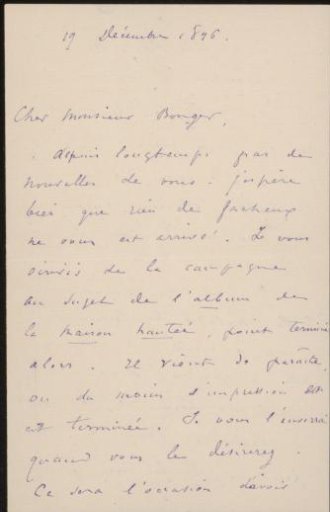 19 Décembre 1896.
Cher Monsieur Bonger,
Depuis longtemps pas de
nouvelles de vous. j'espère
bien que rien de facheux
ne vous est arrivé. Je vous
écrivis de la campagne
au sujet de l'album de
la maison hantée, point terminé
alors. Il vient de paraître,
ou du moins l'impression
est terminée. Je vous l'enverrai
quand vous le désirerez.
Ce sera l'occasion d'avoir